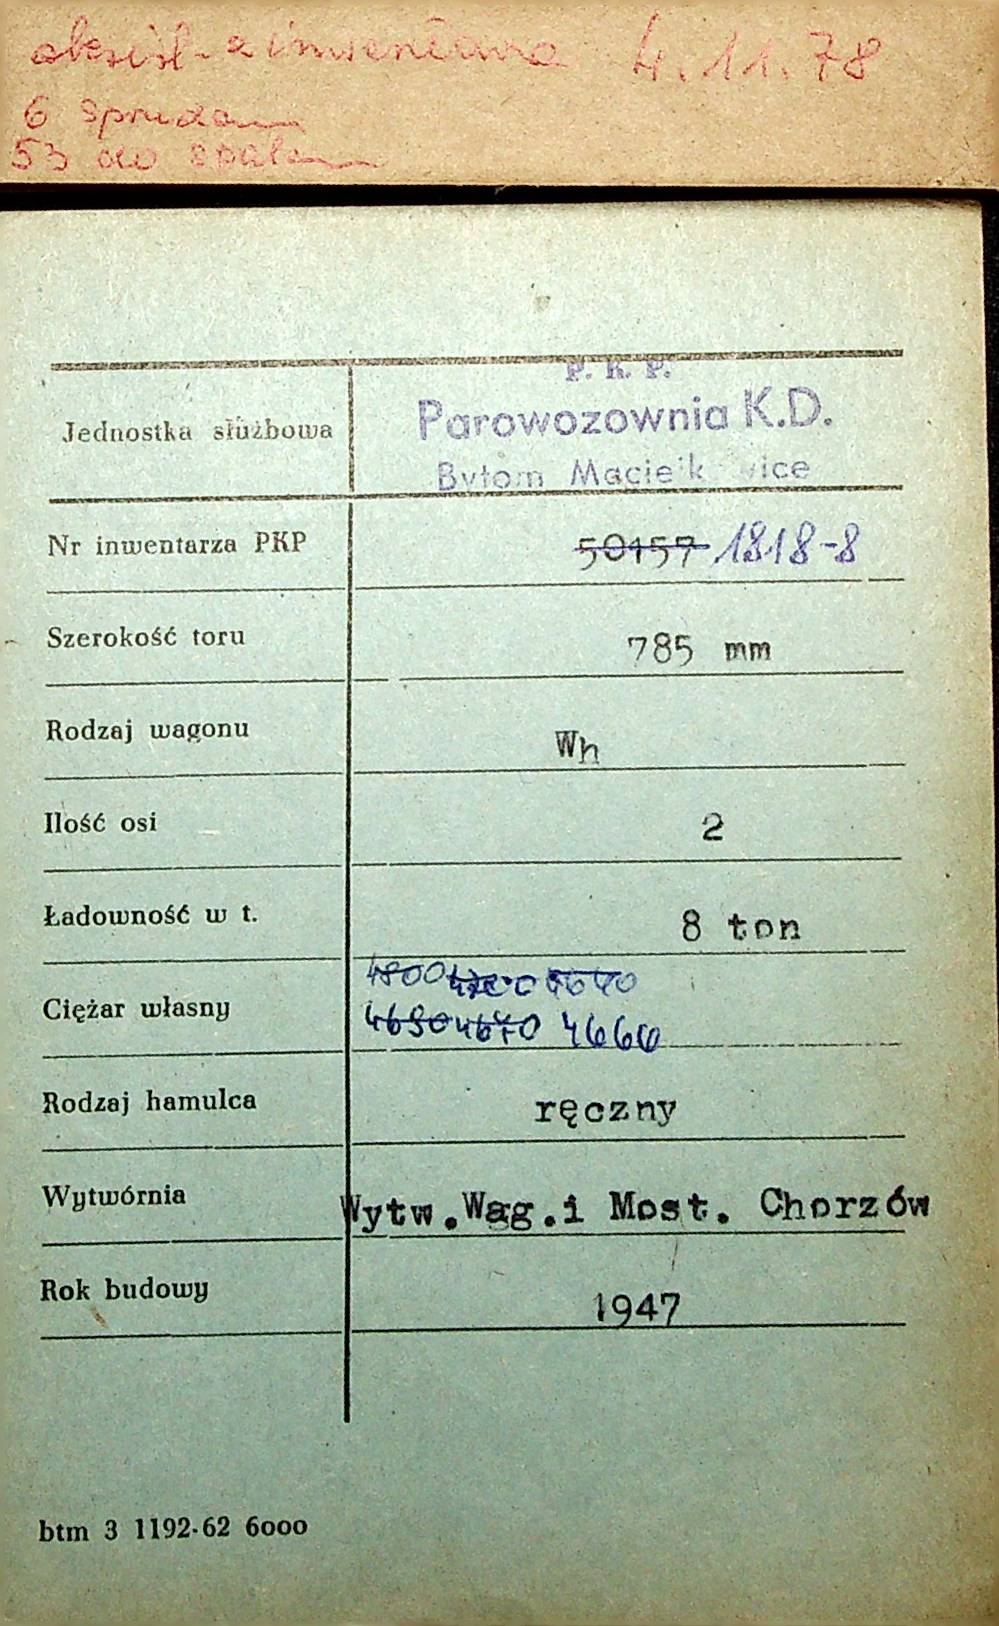 z inwentarza 4.11.78
6
53 do
P. K. P.
Jednostka służbowa Parowozownia K.D.
Bytom Maciejk wice
Nr inwentarza PKP 50157 1818-8
Szerokość toru 785 mm
Rodzaj wagonu Wh
Ilość osi 2
Ładowność w t. 8 ton
4800 4700 4640
Ciężar własny
4690 4670 4660
Rodzaj hamulca ręczny
Wytwórnia Wytw.Wag.i Most. Chorzów
Rok budowy 1947
btm 3 1192-62 6000